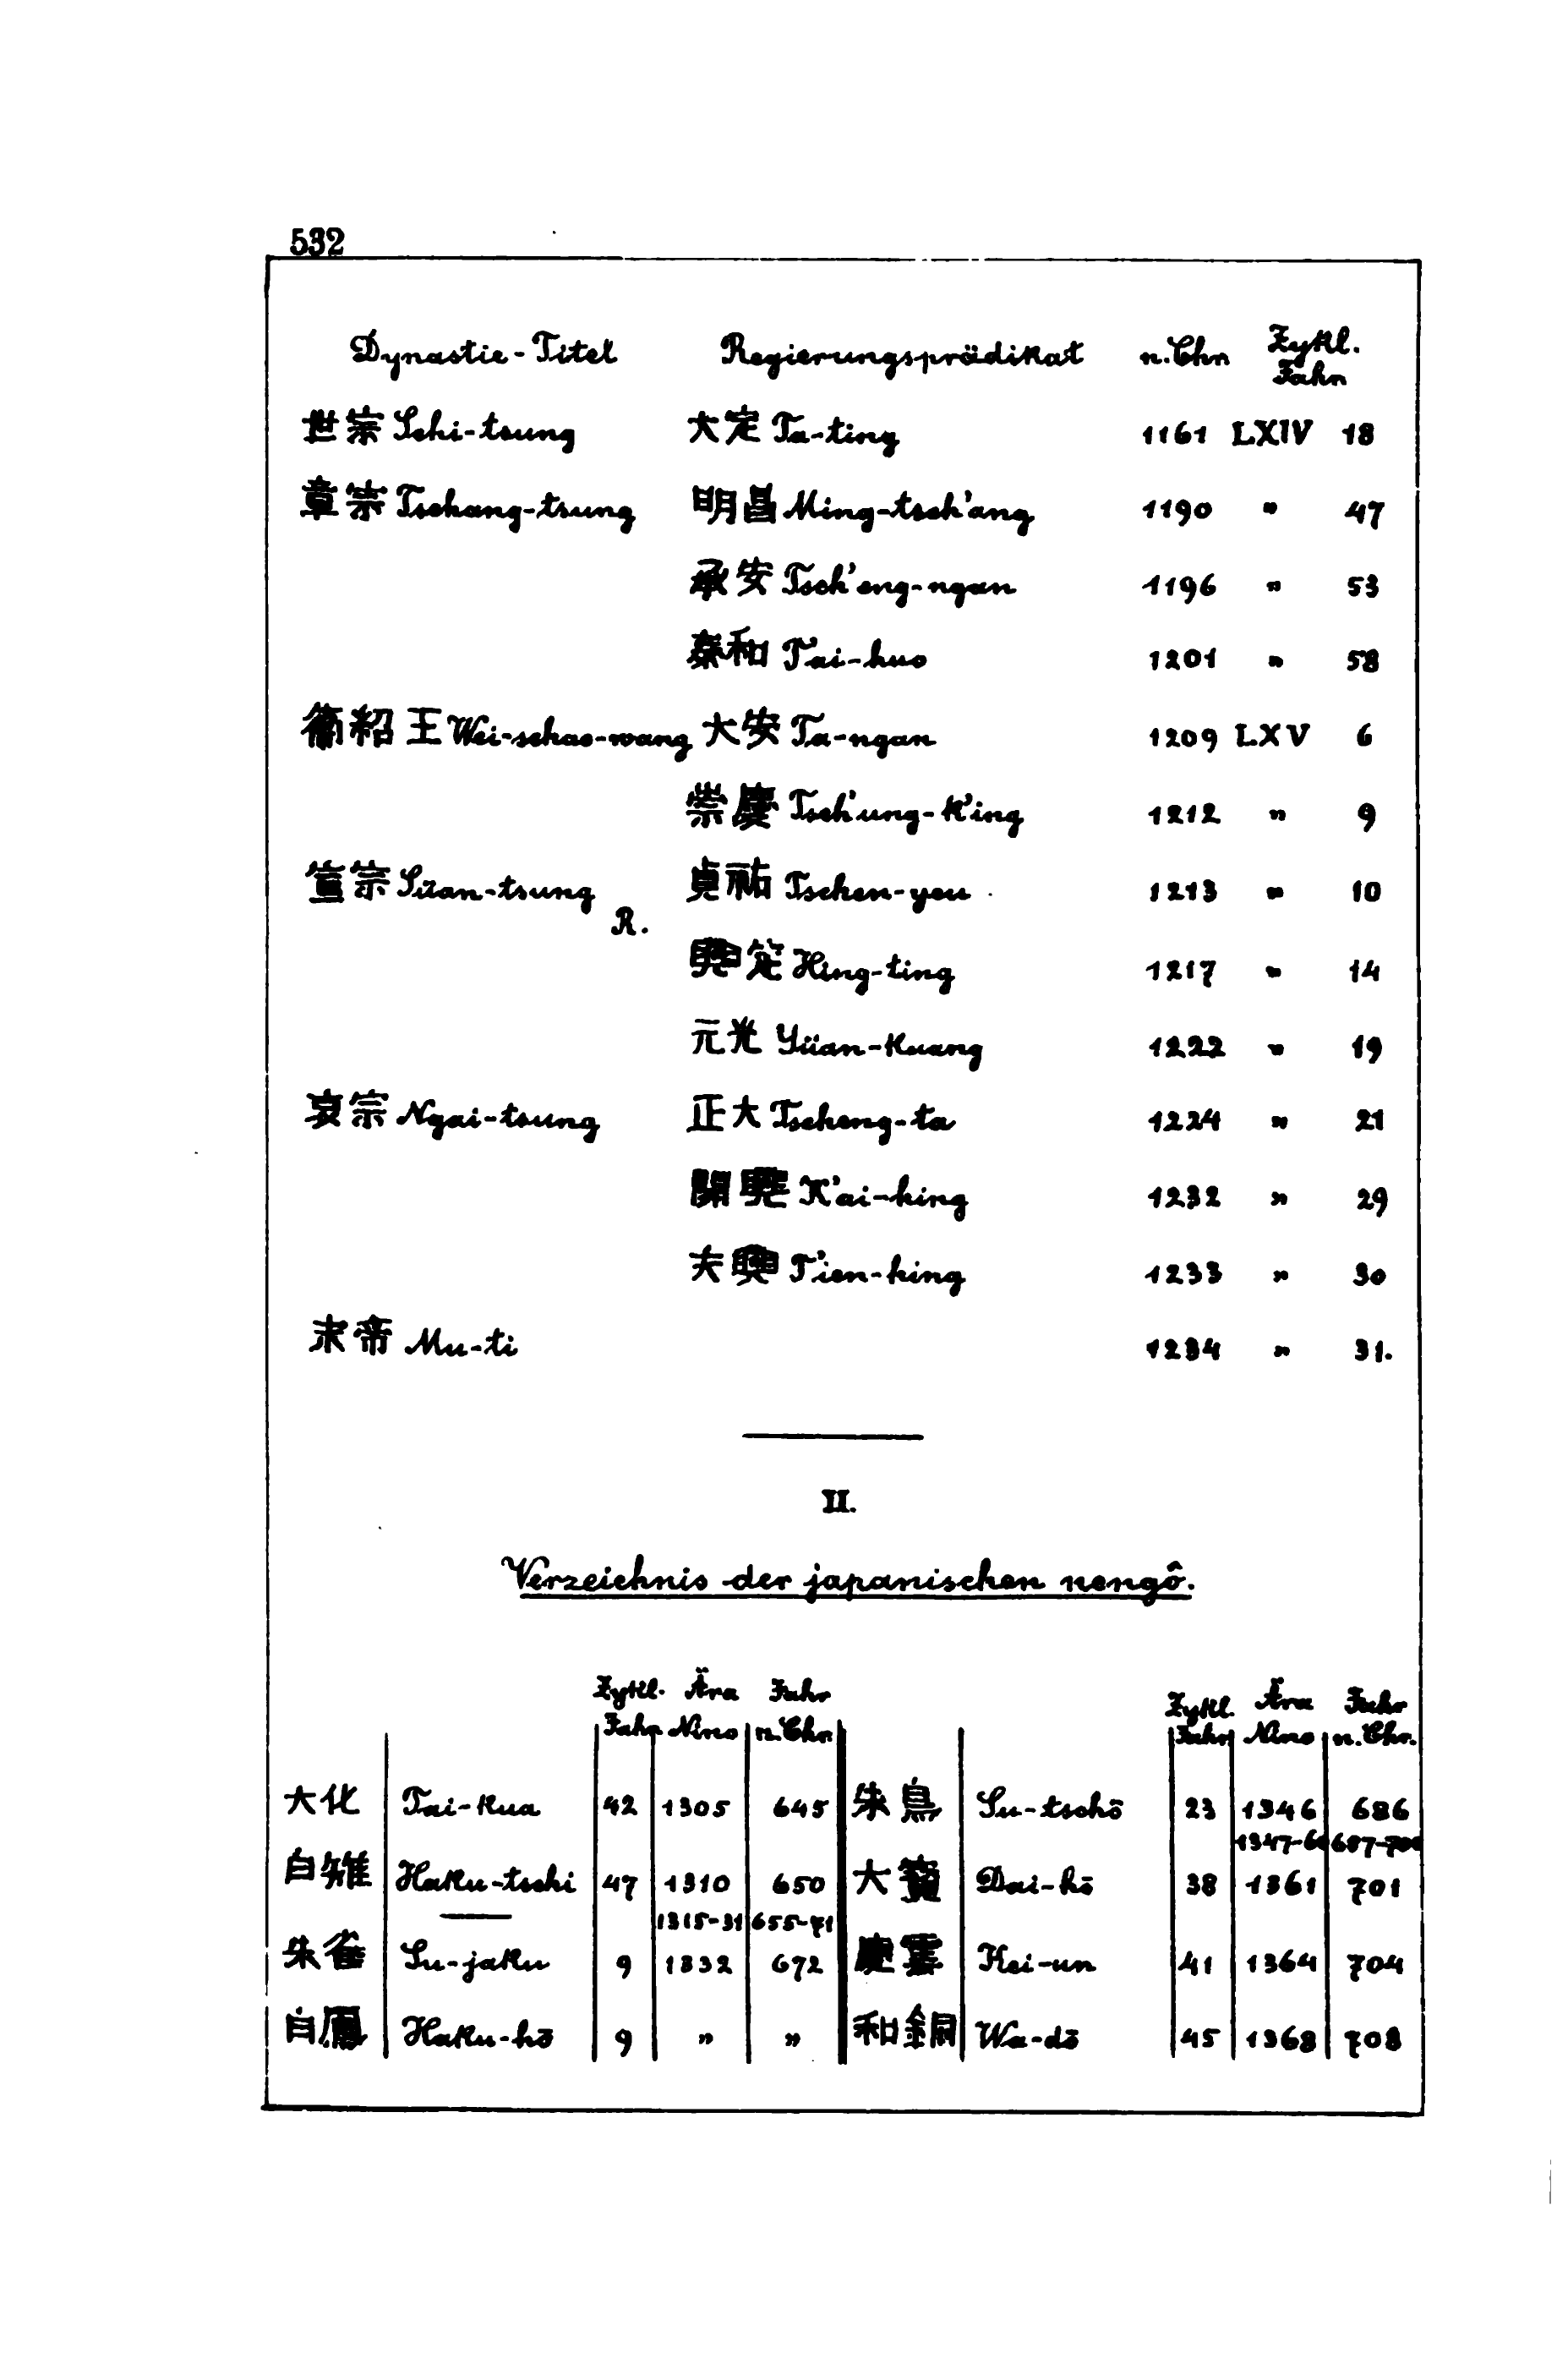 532
Dynastie-Titel Regierungsprädikat n. Chr Zykl.
Jahr
世宗 Schi-tsung 大定 Ta-ting 1161 LXIV 18
章宗 Tschang-tsung 明昌 Ming-tsch'ang 1190 " 47
承安 Tsch'eng-ngan 1196 " 53
泰和 T'ai-huo 1201 " 58
衞紹王 Wei-schao-wang 大安 Ta-ngan 1209 LXV 6
崇慶 Tsch'ung-k'ing 1212 " 9
宣宗 Süan-tsung 貞祐 Tschen-you 1213 " 10
R.
興定 Hing-ting 1217 " 14
元光 Yüan-kuang 1222 " 19
哀宗 Ngai-tsung 正大 Tscheng-ta 1224 " 21
開興 K'ai-hing 1232 " 29
天興 T'ien-hing 1233 " 30
末帝 Mu-ti 1234 " 31.
II.
Verzeichnis der japanischen nengô.
Zykl. Ära Jahr Zykl. Ära Jahr
Jahr Nino n. Chr. Jahr Nino n. Chr.
大化 Tai-kua 42 1305 645 朱鳥 Su-tschō 23 1346 686
1347-60 687-700
白雉 Haku-tschi 47 1310 650 大寶 Dai-hō 38 1361 701
1315-31 655-71
朱雀 Su-jaku 9 1332 672 慶雲 Kei-un 41 1364 704
白鳳 Haku-hō 9 " " 和銅 Wa-dō 45 1368 708